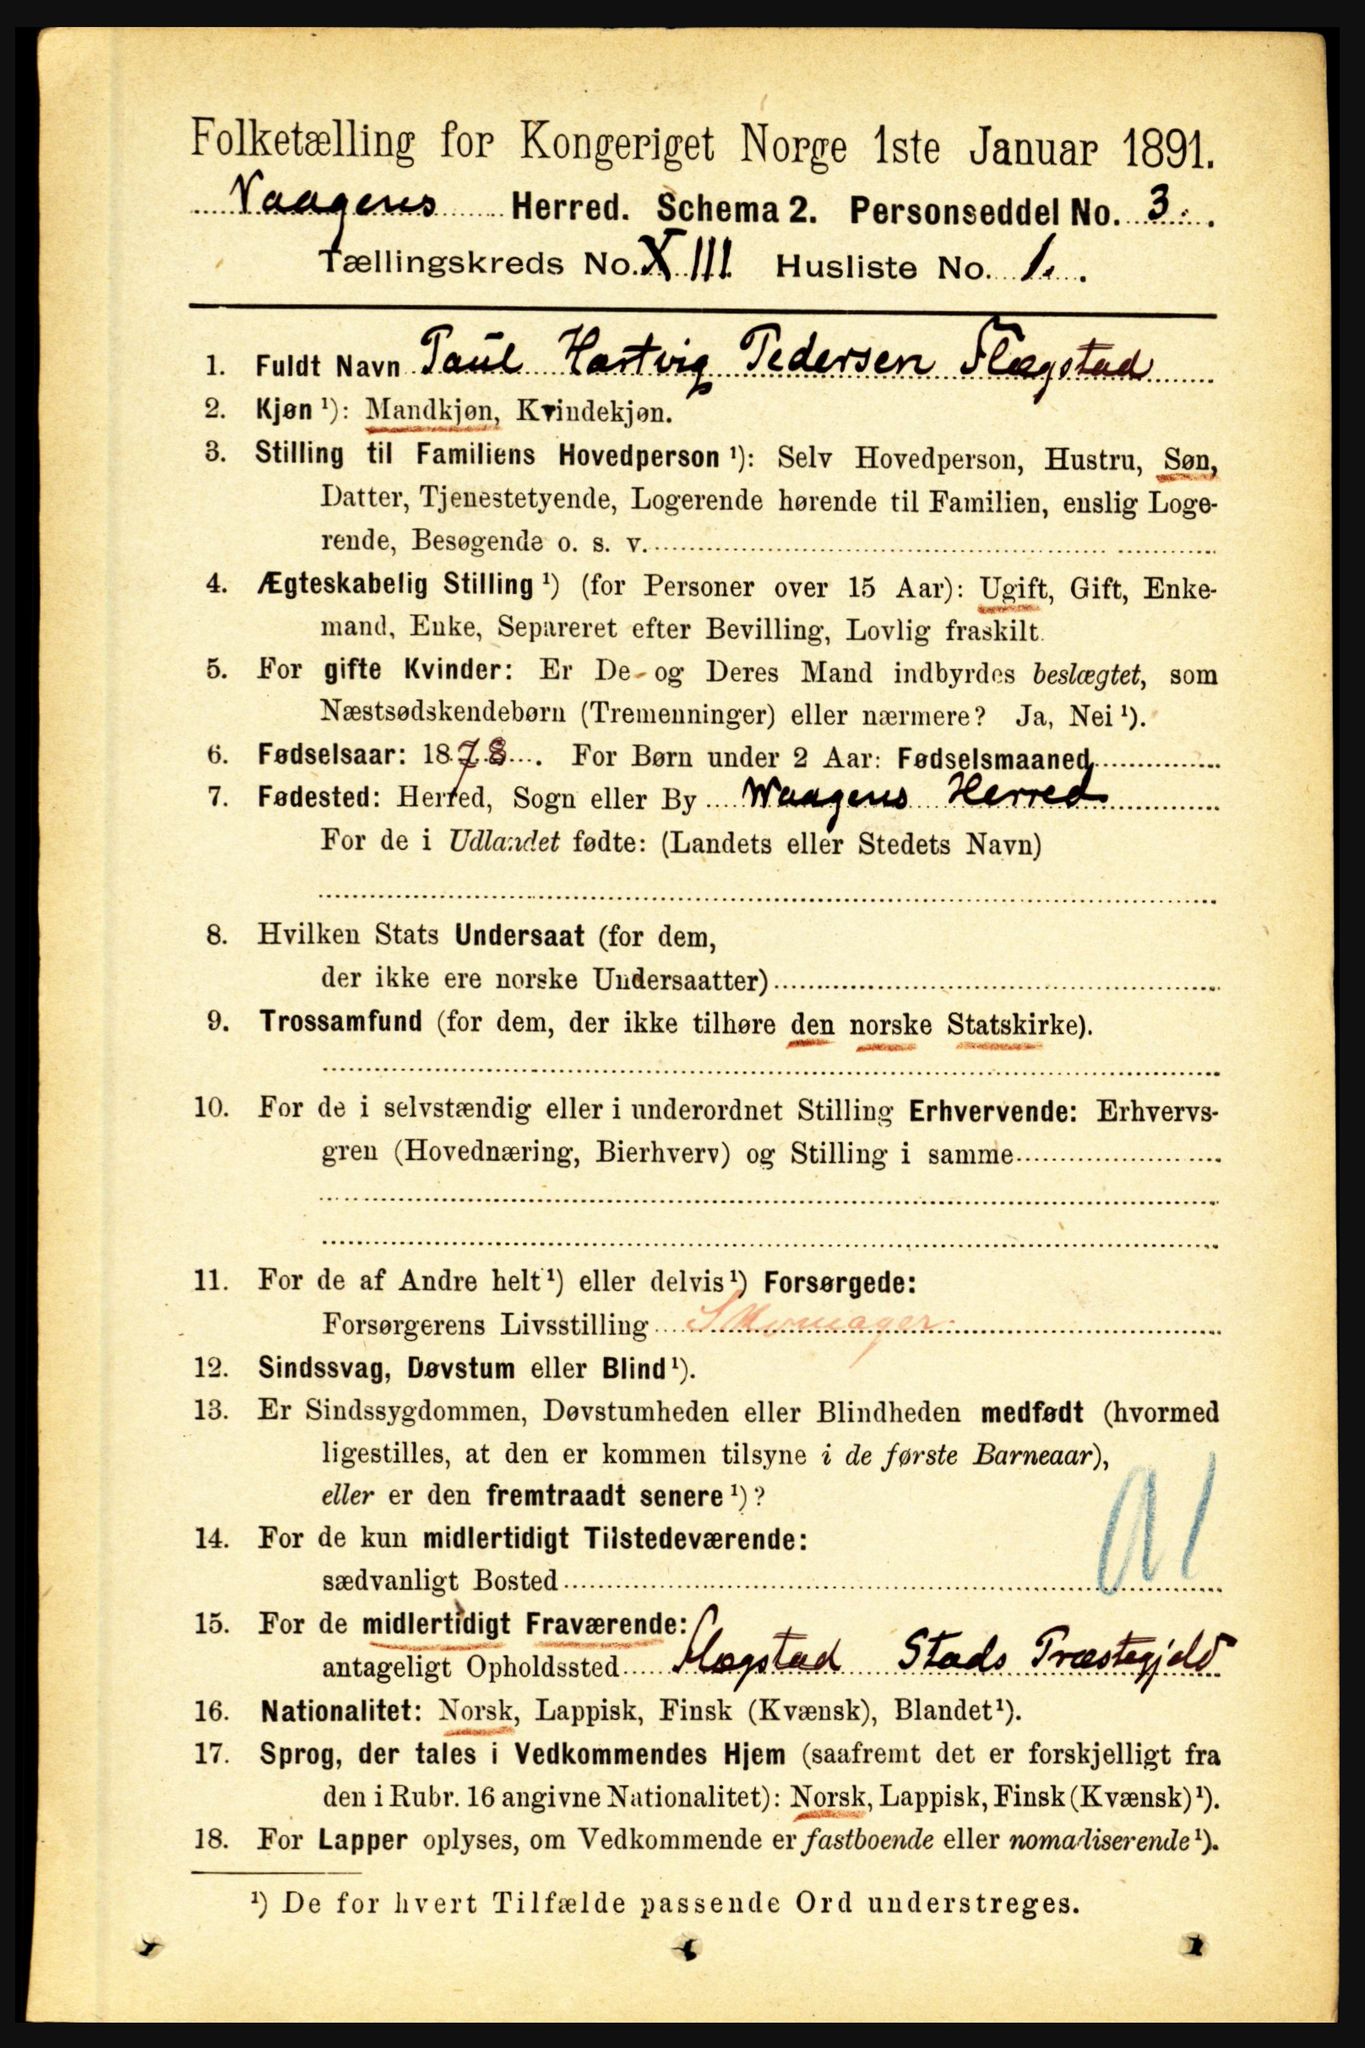 Folketælling for Kongeriget Norge 1ste Januar 1891.
Vaagens Herred. Schema 2. Personseddel No. 3.
Tællingskreds No. XIII Husliste No. 1.
1. Fuldt Navn Paul Hartvig Pedersen Flagstad
2. Kjøn ¹): Mandkjøn, Kvindekjøn.
3. Stilling til Familiens Hovedperson ¹): Selv Hovedperson, Hustru, Søn,
Datter, Tjenestetyende, Logerende hørende til Familien, enslig Loge-
rende, Besøgende o. s. v.
4. Ægteskabelig Stilling ¹) (for Personer over 15 Aar): Ugift, Gift, Enke-
mand, Enke, Separeret efter Bevilling, Lovlig fraskilt.
5. For gifte Kvinder: Er De og Deres Mand indbyrdes beslægtet, som
Næstsødskendebørn (Tremenninger) eller nærmere? Ja, Nei ¹).
6. Fødselsaar: 1878. For Børn under 2 Aar: Fødselsmaaned
7. Fødested: Herred, Sogn eller By Waagens Herred
For de i Udlandet fødte: (Landets eller Stedets Navn)
8. Hvilken Stats Undersaat (for dem,
der ikke ere norske Undersaatter)
9. Trossamfund (for dem, der ikke tilhøre den norske Statskirke).
10. For de i selvstændig eller i underordnet Stilling Erhvervende: Erhvervs-
gren (Hovednæring, Bierhverv) og Stilling i samme
11. For de af Andre helt ¹) eller delvis ¹) Forsørgede:
Forsørgerens Livsstilling Skomager
12. Sindssvag, Døvstum eller Blind ¹).
13. Er Sindssygdommen, Døvstumheden eller Blindheden medfødt (hvormed
ligestilles, at den er kommen tilsyne i de første Barneaar),
eller er den fremtraadt senere ¹)?
14. For de kun midlertidigt Tilstedeværende:
sædvanligt Bosted
15. For de midlertidigt Fraværende:
antageligt Opholdssted Flagstad Stads Præstegjeld
16. Nationalitet: Norsk, Lappisk, Finsk (Kvænsk), Blandet ¹).
17. Sprog, der tales i Vedkommendes Hjem (saafremt det er forskjelligt fra
den i Rubr. 16 angivne Nationalitet): Norsk, Lappisk, Finsk (Kvænsk) ¹).
18. For Lapper oplyses, om Vedkommende er fastboende eller nomadiserende ¹).
¹) De for hvert Tilfælde passende Ord understreges.